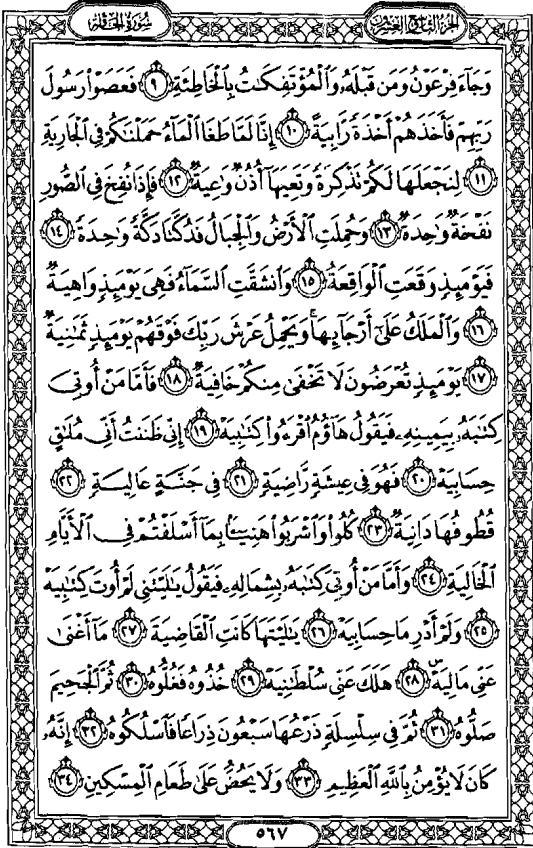 سُورَةُ الْحَاقَّةِ
الجُزْءُ التَّاسِعُ وَالعِشْرُونَ
وَجَآءَ فِرْعَوْنُ وَمَن قَبْلَهُۥ وَٱلْمُؤْتَفِكَٰتُ بِٱلْخَاطِئَةِ ٩ فَعَصَوْا۟ رَسُولَ
رَبِّهِمْ فَأَخَذَهُمْ أَخْذَةً رَّابِيَةً ١٠ إِنَّا لَمَّا طَغَا ٱلْمَآءُ حَمَلْنَٰكُمْ فِى ٱلْجَارِيَةِ
١١ لِنَجْعَلَهَا لَكُمْ تَذْكِرَةً وَتَعِيَهَآ أُذُنٌ وَٰعِيَةٌ ١٢ فَإِذَا نُفِخَ فِى ٱلصُّورِ
نَفْخَةٌ وَٰحِدَةٌ ١٣ وَحُمِلَتِ ٱلْأَرْضُ وَٱلْجِبَالُ فَدُكَّتَا دَكَّةً وَٰحِدَةً ١٤
فَيَوْمَئِذٍ وَقَعَتِ ٱلْوَاقِعَةُ ١٥ وَٱنشَقَّتِ ٱلسَّمَآءُ فَهِىَ يَوْمَئِذٍ وَاهِيَةٌ
١٦ وَٱلْمَلَكُ عَلَىٰٓ أَرْجَآئِهَا ۚ وَيَحْمِلُ عَرْشَ رَبِّكَ فَوْقَهُمْ يَوْمَئِذٍ ثَمَٰنِيَةٌ
١٧ يَوْمَئِذٍ تُعْرَضُونَ لَا تَخْفَىٰ مِنكُمْ خَافِيَةٌ ١٨ فَأَمَّا مَنْ أُوتِىَ
كِتَٰبَهُۥ بِيَمِينِهِۦ فَيَقُولُ هَآؤُمُ ٱقْرَءُوا۟ كِتَٰبِيَهْ ١٩ إِنِّى ظَنَنتُ أَنِّى مُلَٰقٍ
حِسَابِيَهْ ٢٠ فَهُوَ فِى عِيشَةٍ رَّاضِيَةٍ ٢١ فِى جَنَّةٍ عَالِيَةٍ ٢٢
قُطُوفُهَا دَانِيَةٌ ٢٣ كُلُوا۟ وَٱشْرَبُوا۟ هَنِيٓـًٔۢا بِمَآ أَسْلَفْتُمْ فِى ٱلْأَيَّامِ
ٱلْخَالِيَةِ ٢٤ وَأَمَّا مَنْ أُوتِىَ كِتَٰبَهُۥ بِشِمَالِهِۦ فَيَقُولُ يَٰلَيْتَنِى لَمْ أُوتَ كِتَٰبِيَهْ
٢٥ وَلَمْ أَدْرِ مَا حِسَابِيَهْ ٢٦ يَٰلَيْتَهَا كَانَتِ ٱلْقَاضِيَةَ ٢٧ مَآ أَغْنَىٰ
عَنِّى مَالِيَهْ ۜ ٢٨ هَلَكَ عَنِّى سُلْطَٰنِيَهْ ٢٩ خُذُوهُ فَغُلُّوهُ ٣٠ ثُمَّ ٱلْجَحِيمَ
صَلُّوهُ ٣١ ثُمَّ فِى سِلْسِلَةٍ ذَرْعُهَا سَبْعُونَ ذِرَاعًا فَٱسْلُكُوهُ ٣٢ إِنَّهُۥ
كَانَ لَا يُؤْمِنُ بِٱللَّهِ ٱلْعَظِيمِ ٣٣ وَلَا يَحُضُّ عَلَىٰ طَعَامِ ٱلْمِسْكِينِ ٣٤
٥٦٧